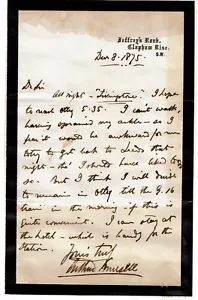 Jeffrey's Road,
Clapham Rise,
S.W.
Dec 8. 1875.
Dr Sir
All right - "Livingstone". I hope
to reach Otley 5.35. I can't walk,
having sprained my ankle - so I
fear it would be awkward for me
to get back to Leeds that
night - tho' I should have liked to
so. But I think I will decide
to remain in Otley till the 9.16
train in the morng: if this is
quite convenient. I can stay at
the hotel - which is handy for the
Station.
Yours truly
Arthur Mursell